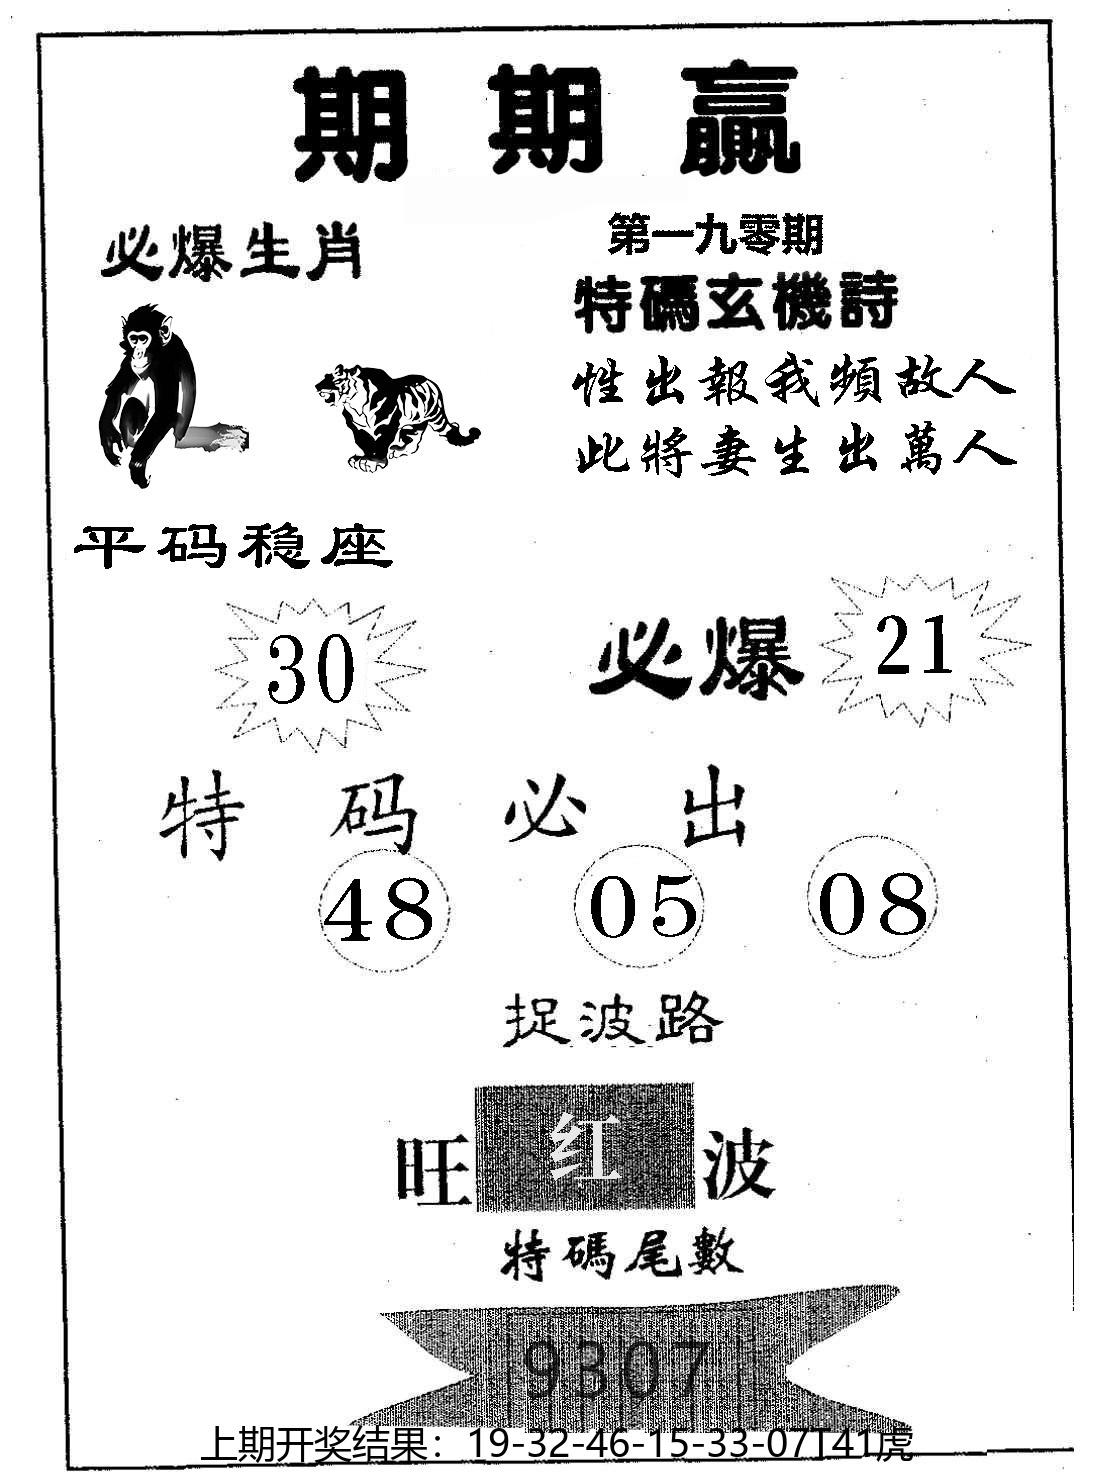 期期贏
必爆生肖
第一九零期
特碼玄機詩
性出報我頻故人
此將妻生出萬人
平码稳座
30
必爆 21
特码必出
48 05 08
捉波路
旺 红 波
特碼尾數
9307
上期开奖结果：19-32-46-15-33-07T41虎